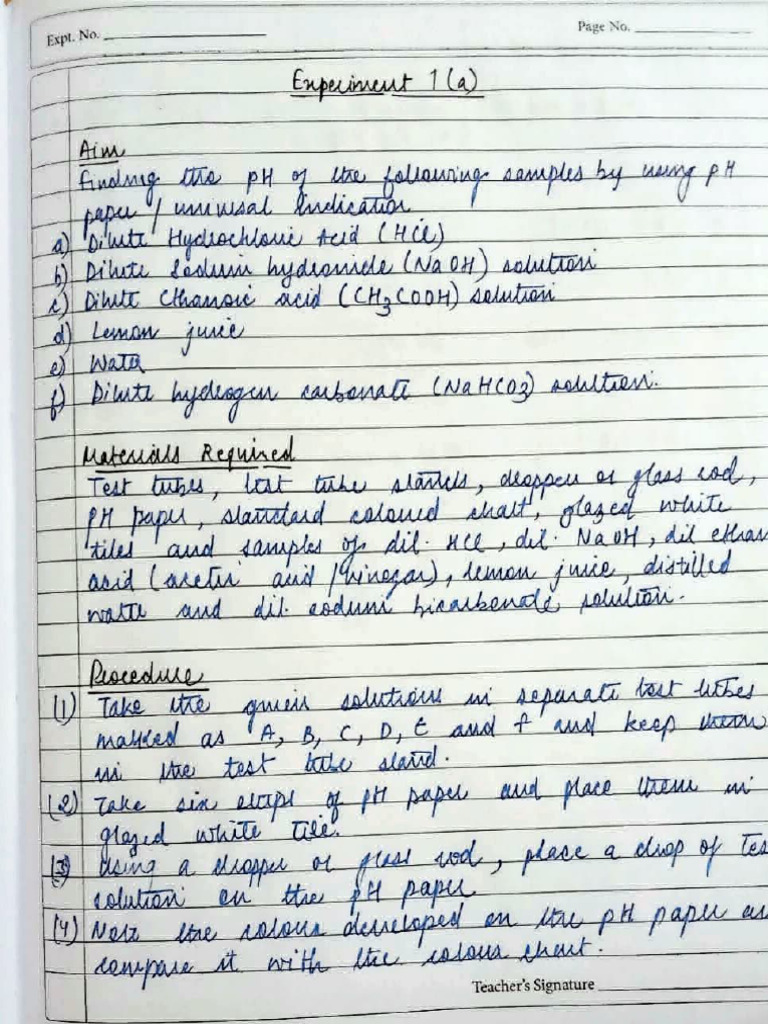 Expt. No.
Page No.
Experiment 1(a)
Aim
finding the pH of the following samples by using pH
paper / universal Indicator
a) Dilute Hydrochloric Acid (HCl)
b) Dilute Sodium hydroxide (NaOH) solution
c) Dilute Ethanoic acid (CH3COOH) solution
d) Lemon juice
e) Water
f) Dilute hydrogen carbonate (NaHCO3) solution.
Materials Required
Test tubes, test tube stands, dropper or glass rod,
pH paper, standard coloured chart, glazed white
tiles and samples of dil. HCl, dil. NaOH, dil ethan
acid (acetic acid / vinegar), lemon juice, distilled
water and dil. sodium bicarbonate solution.
Procedure
(1) Take the given solutions in separate test tubes
marked as A, B, C, D, E and F and keep them
in the test tube stand.
(2) Take six strips of pH paper and place them in
glazed white tile.
(3) Using a dropper or glass rod, place a drop of Tes
solution on the pH paper
(4) Note the colour developed on the pH paper an
compare it with the colour chart.
Teacher's Signature